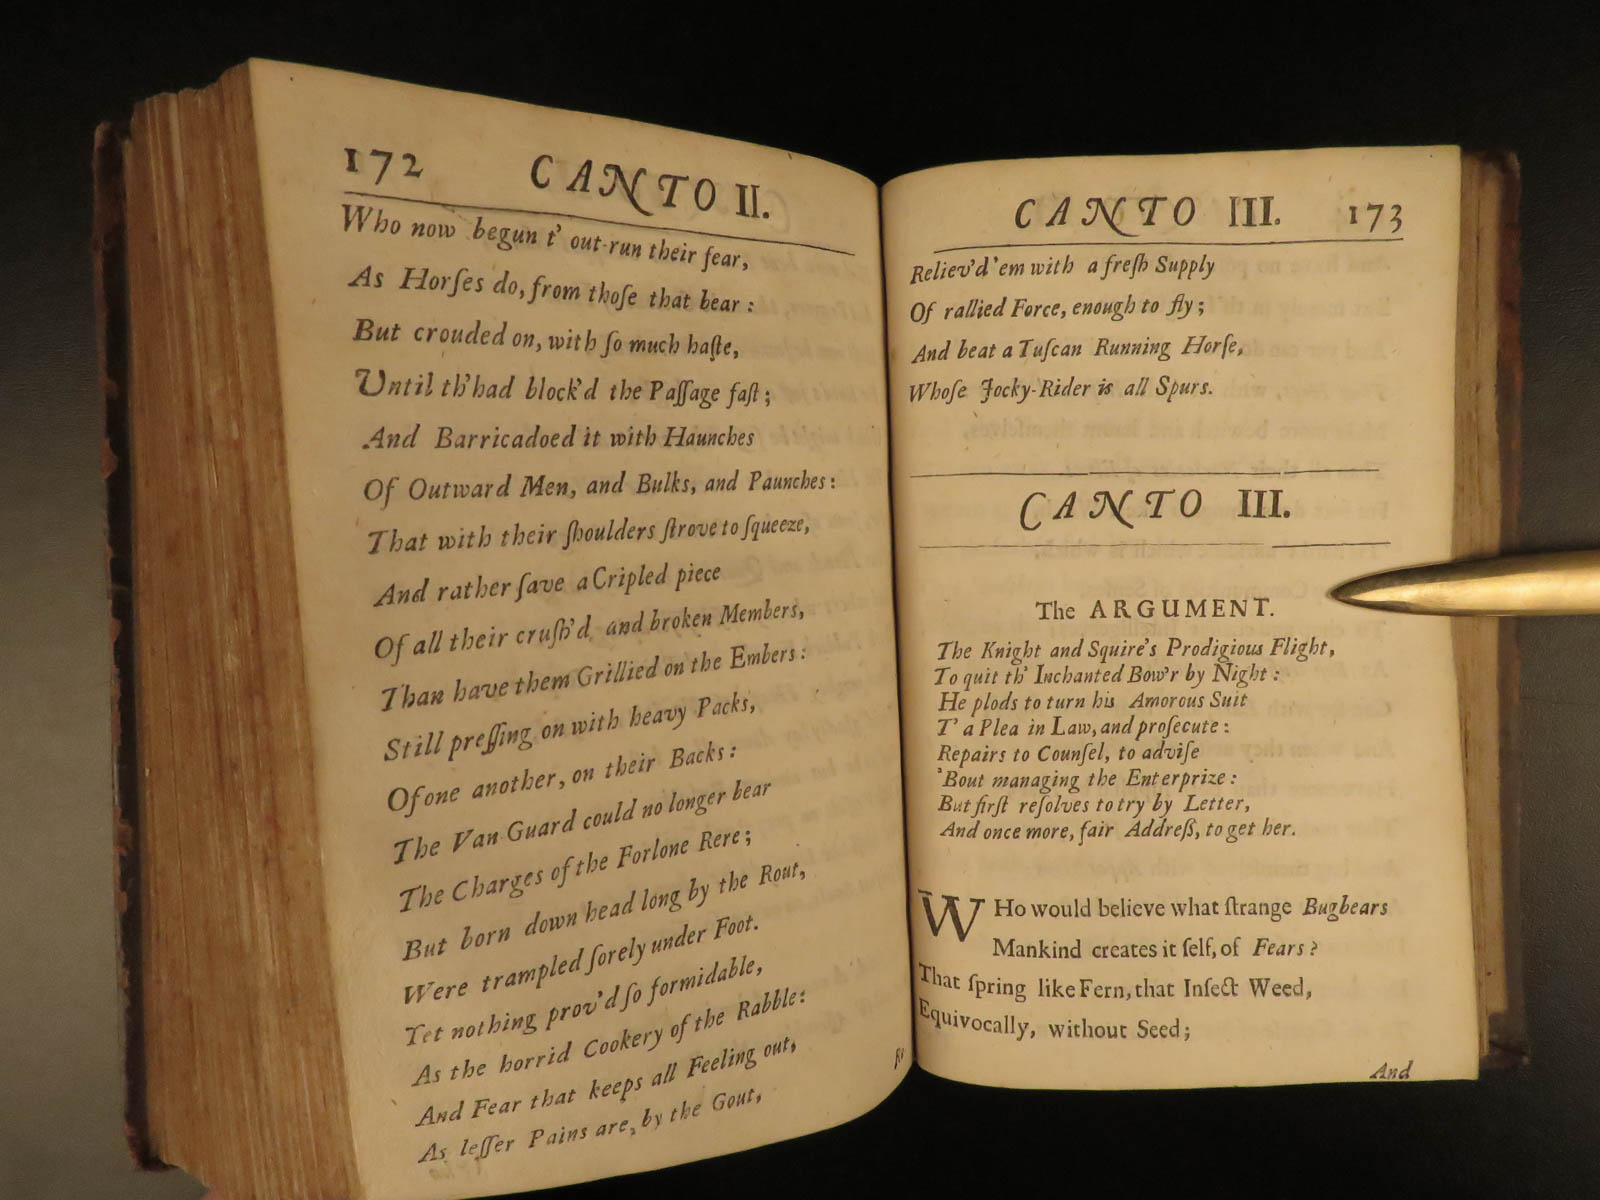 172 CANTO II.
Who now begun t' out-run their fear,
As Horſes do, from thoſe that bear:
But crouded on, with ſo much haſte,
Until th'had block'd the Paſſage faſt;
And Barricadoed it with Haunches
Of Outward Men, and Bulks, and Paunches:
That with their ſhoulders ſtrove to ſqueeze,
And rather ſave a Cripled piece
Of all their cruſh'd and broken Members,
Than have them Grillied on the Embers:
Still preſſing on with heavy Packs,
Of one another, on their Backs:
The Van-Guard could no longer bear
The Charges of the Forlone Rere;
But born down head long by the Rout,
Were trampled ſorely under Foot.
Yet nothing prov'd ſo formidable,
As the horrid Cookery of the Rabble:
And Fear that keeps all Feeling out,
As leſſer Pains are, by the Gout,
CANTO III. 173
Reliev'd 'em with a freſh Supply
Of rallied Force, enough to fly;
And beat a Tuſcan Running Horſe,
Whoſe Jocky-Rider is all Spurs.
CANTO III.
The ARGUMENT.
The Knight and Squire's Prodigious Flight,
To quit th' Inchanted Bow'r by Night:
He plods to turn his Amorous Suit
T' a Plea in Law, and proſecute:
Repairs to Counſel, to adviſe
'Bout managing the Enterprize:
But firſt reſolves to try by Letter,
And once more, fair Addreſs, to get her.
WHo would believe what ſtrange Bugbears
Mankind creates it ſelf, of Fears?
That ſpring like Fern, that Inſect Weed,
Equivocally, without Seed;
And